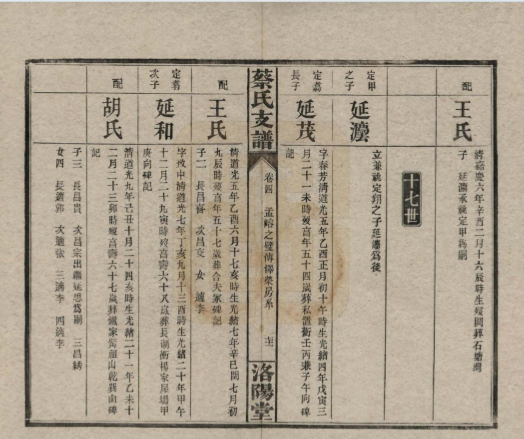 配
王氏
清嘉慶六年辛酉二月十六辰時生歿闕葬石塘灣
子一 延瀍承祧定甲爲嗣
十七世
定甲
之子
延瀍
立兼祧定翔之子延瀍爲後
定嵩
長子
延茂
字春芳清道光五年乙酉正月初十午時生光緒四年戊寅三
月二十一未時歿享年五十四歲葬私置衝壬丙兼子午向碑
記
蔡氏支譜
卷四
孟
之璧傳
榮房系
洛陽堂
配
王氏
清道光五年乙酉六月十七亥時生光緒七年辛巳閏七月初
九辰時歿壽年五十七歲葬合夫冢碑記
子二 長昌
次昌交 女一 適李
定嵩
次子
延和
字致中清道光七年丁亥九月十三酉時生光緒二十年甲午
十二月二十九寅時歿享壽六十八歲葬長湖衝楊家屋場甲
庚向碑記
配
胡氏
清道光九年己丑十月二十四亥時生光緒二十一年乙未十
二月二十三卯時歿享壽六十七歲葬
家
山乾巽向碑
記
子三 長昌貴 次昌宗出繼延思爲嗣 三昌
女四 長適郭 次適張 三適李 四適李